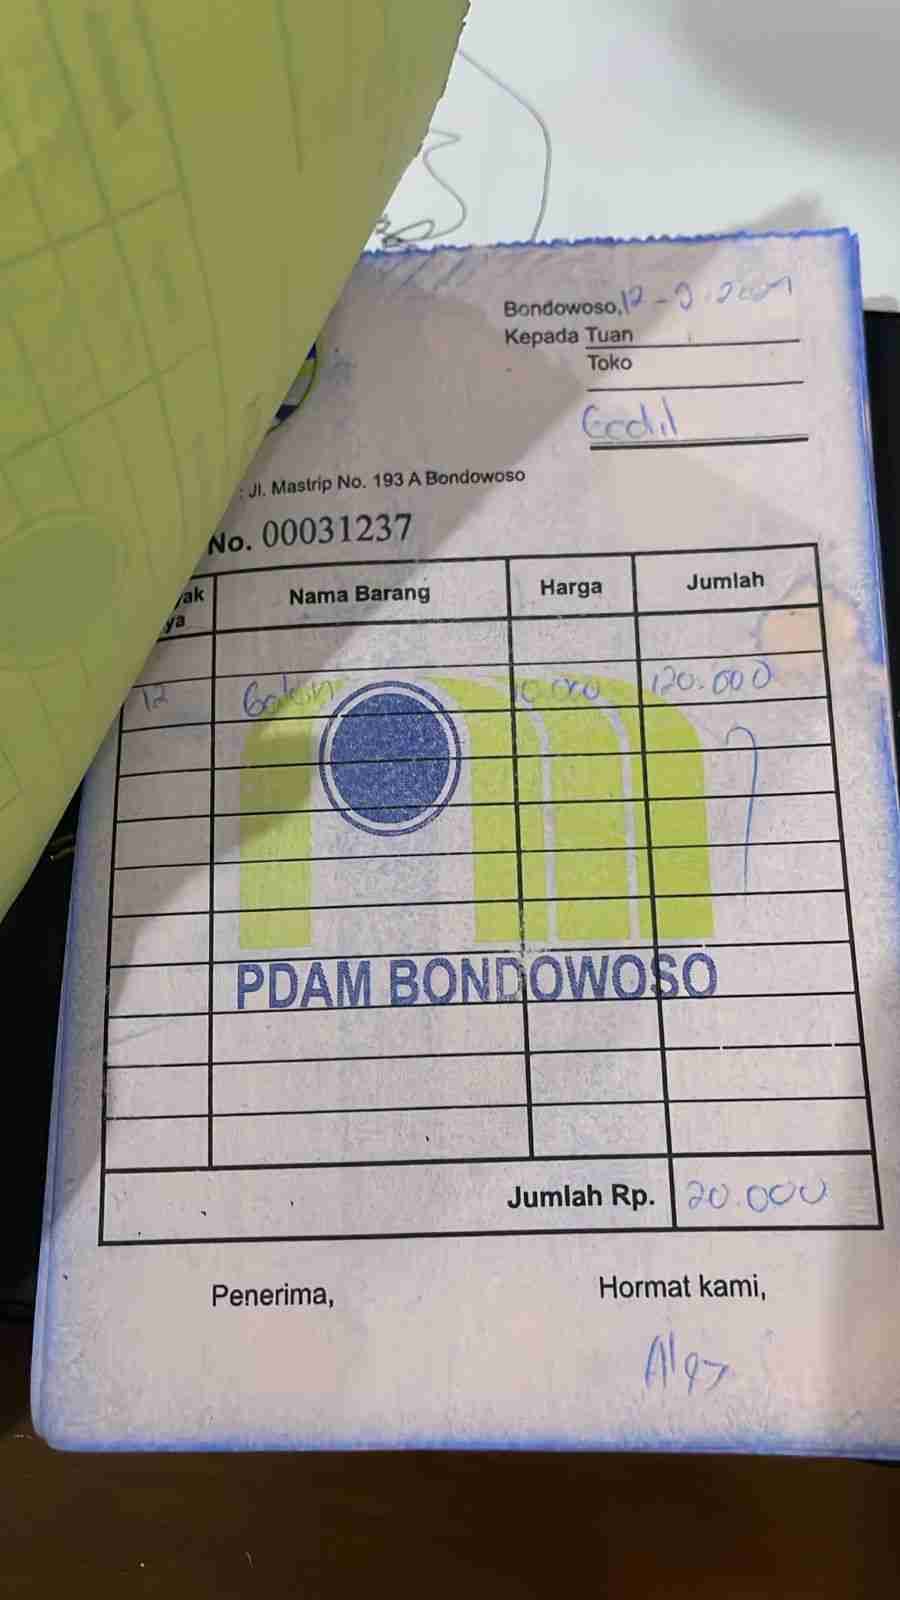 Bondowoso, 12
Kepada Tuan
Toko
: Jl. Mastrip No. 193 A Bondowoso
No. 00031237
yak Nama Barang Harga Jumlah
ya
12 Galon 120.000
PDAM BONDOWOSO
Jumlah Rp. 20.000
Penerima, Hormat kami,